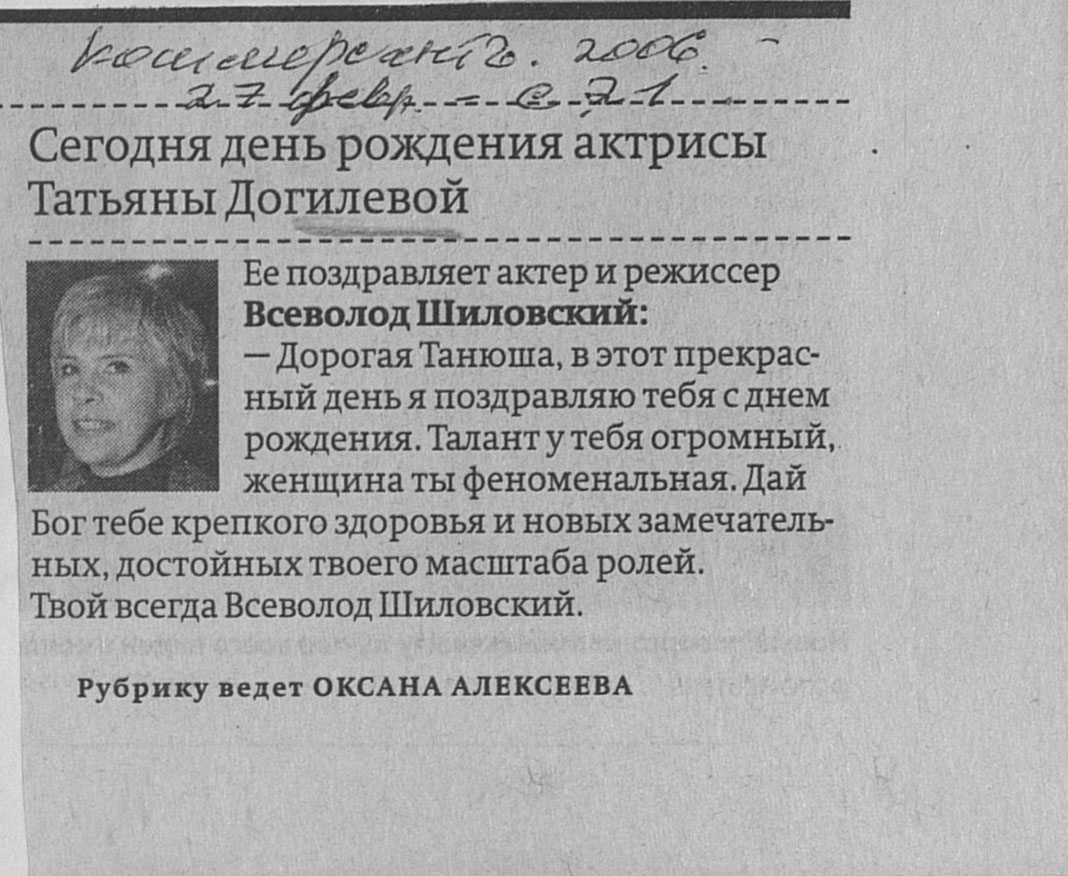 Коммерсантъ. 2006. –
27 февр. – с. 21
Сегодня день рождения актрисы
Татьяны Догилевой
Ее поздравляет актер и режиссер
Всеволод Шиловский:
— Дорогая Танюша, в этот прекрас-
ный день я поздравляю тебя с днем
рождения. Талант у тебя огромный,
женщина ты феноменальная. Дай
Бог тебе крепкого здоровья и новых замечатель-
ных, достойных твоего масштаба ролей.
Твой всегда Всеволод Шиловский.
Рубрику ведет ОКСАНА АЛЕКСЕЕВА